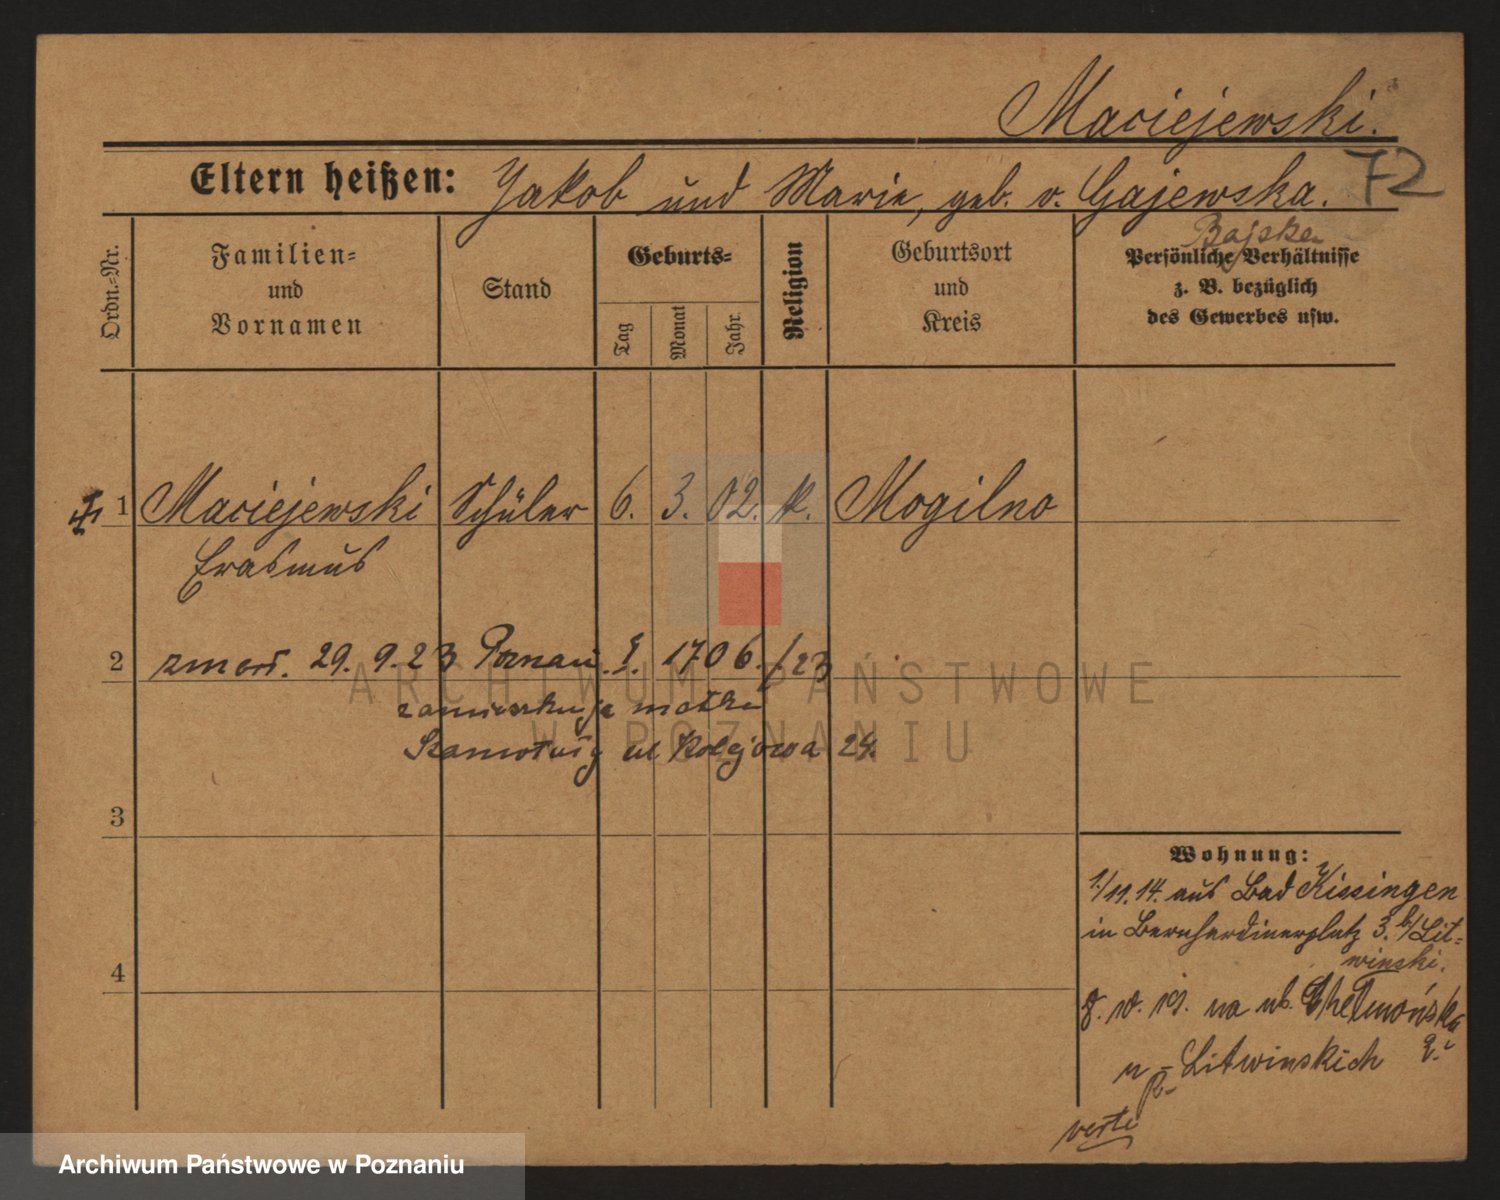 Maciejewski.
72
Eltern heißen: Jakob und Marie, geb. v. Gajewska.
Bajska
Ordn.-Nr.
Familien-
und
Vornamen
Stand
Geburts-
Tag
Monat
Jahr
Religion
Geburtsort
und
Kreis
Persönliche Verhältnisse
z. B. bezüglich
des Gewerbes usw.
1 Maciejewski Schüler 6. 3. 02. k. Mogilno
Erasmus
2 zmarł. 29. 9. 23 Poznań. 1706./23
zamieszkuje matka
Szamotuły ul Kolejowa 24.
3
4
Wohnung:
1/11.14. aus Bad Kissingen
in Bernhardinerplatz 3. b/Lit-
winski.
8. 10. 19. na ul. Chełmońska
u Litwinskich
verte
ARCHIWUM PAŃSTWOWE
W POZNANIU
Archiwum Państwowe w Poznaniu